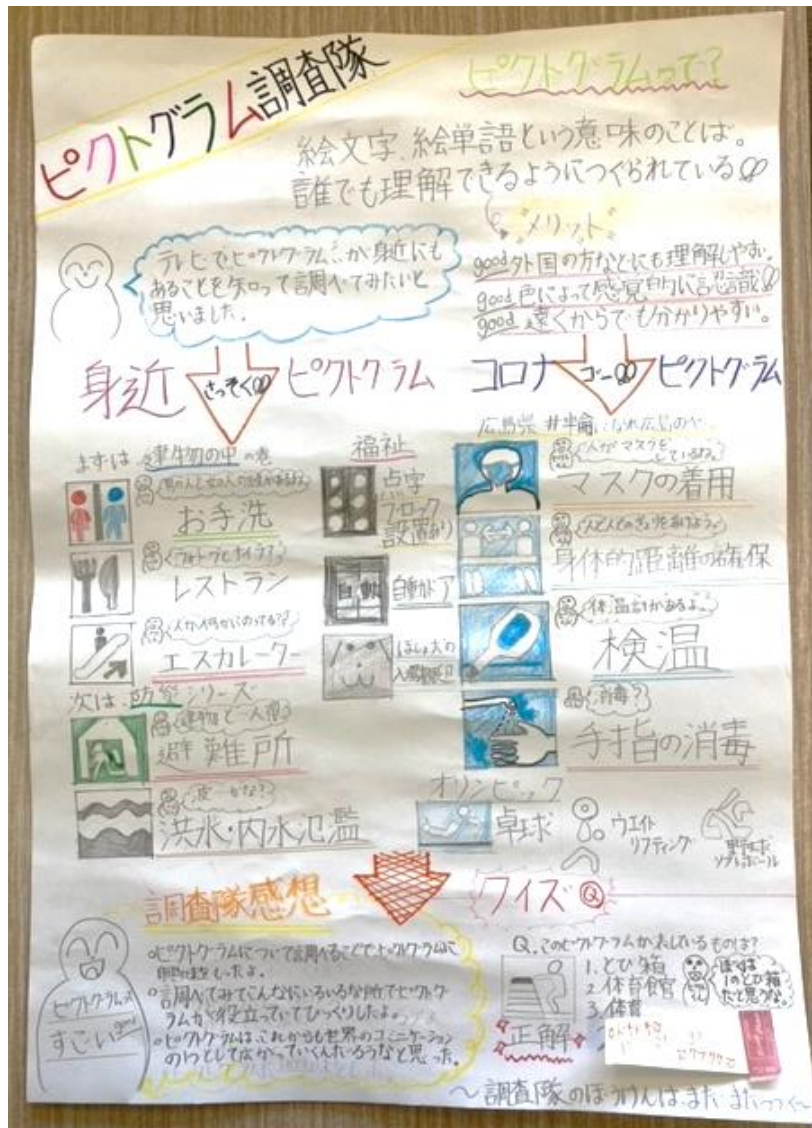 ピクトグラム調査隊
ピクトグラムって?
絵文字、絵単語という意味のことば。
誰でも理解できるようにつくられている!!
メリット
good 外国の方などにも理解しやすい。
good 色によって感覚的に認識!!
good 遠くからでも分かりやすい。
テレビでピクトグラムが身近にも
あることを知って調べてみたいと
思いました。
身近 さっそく!! ピクトグラム
まずは 建物の中の巻
お手洗
レストラン
人が何かにのってる??
エスカレーター
次は、防災シリーズ
避難所
波…かな?
洪水・内水氾濫
福祉
点字
ブロック
設置あり
自動
自動ドア
コロナ ゴー!! ピクトグラム
広島県
人がマスクを
しているよ。
マスクの着用
身体的距離の確保
体温計があるよ。
検温
消毒?
手指の消毒
オリンピック
卓球
ウエイト
リフティング
野球
ソフトボール
調査隊感想
・ピクトグラムについて調べることでピクトグラムに
興味をもったよ。
・調べてみてこんなにいろいろな所でピクトグ
ラムが役立っていてびっくりしたよ。
・ピクトグラムは、これからも世界のコミュニケーション
の1つとして広がっていくんだろうなと思った。
ピクトグラムって
すごい good
クイズ Q
Q.このピクトグラムが表しているものは?
1.とび箱
2.体育館
3.体育
ぼくは
1のとび箱
だと思うな。
正解
~調査隊のぼうけんは、まだまだつづく~